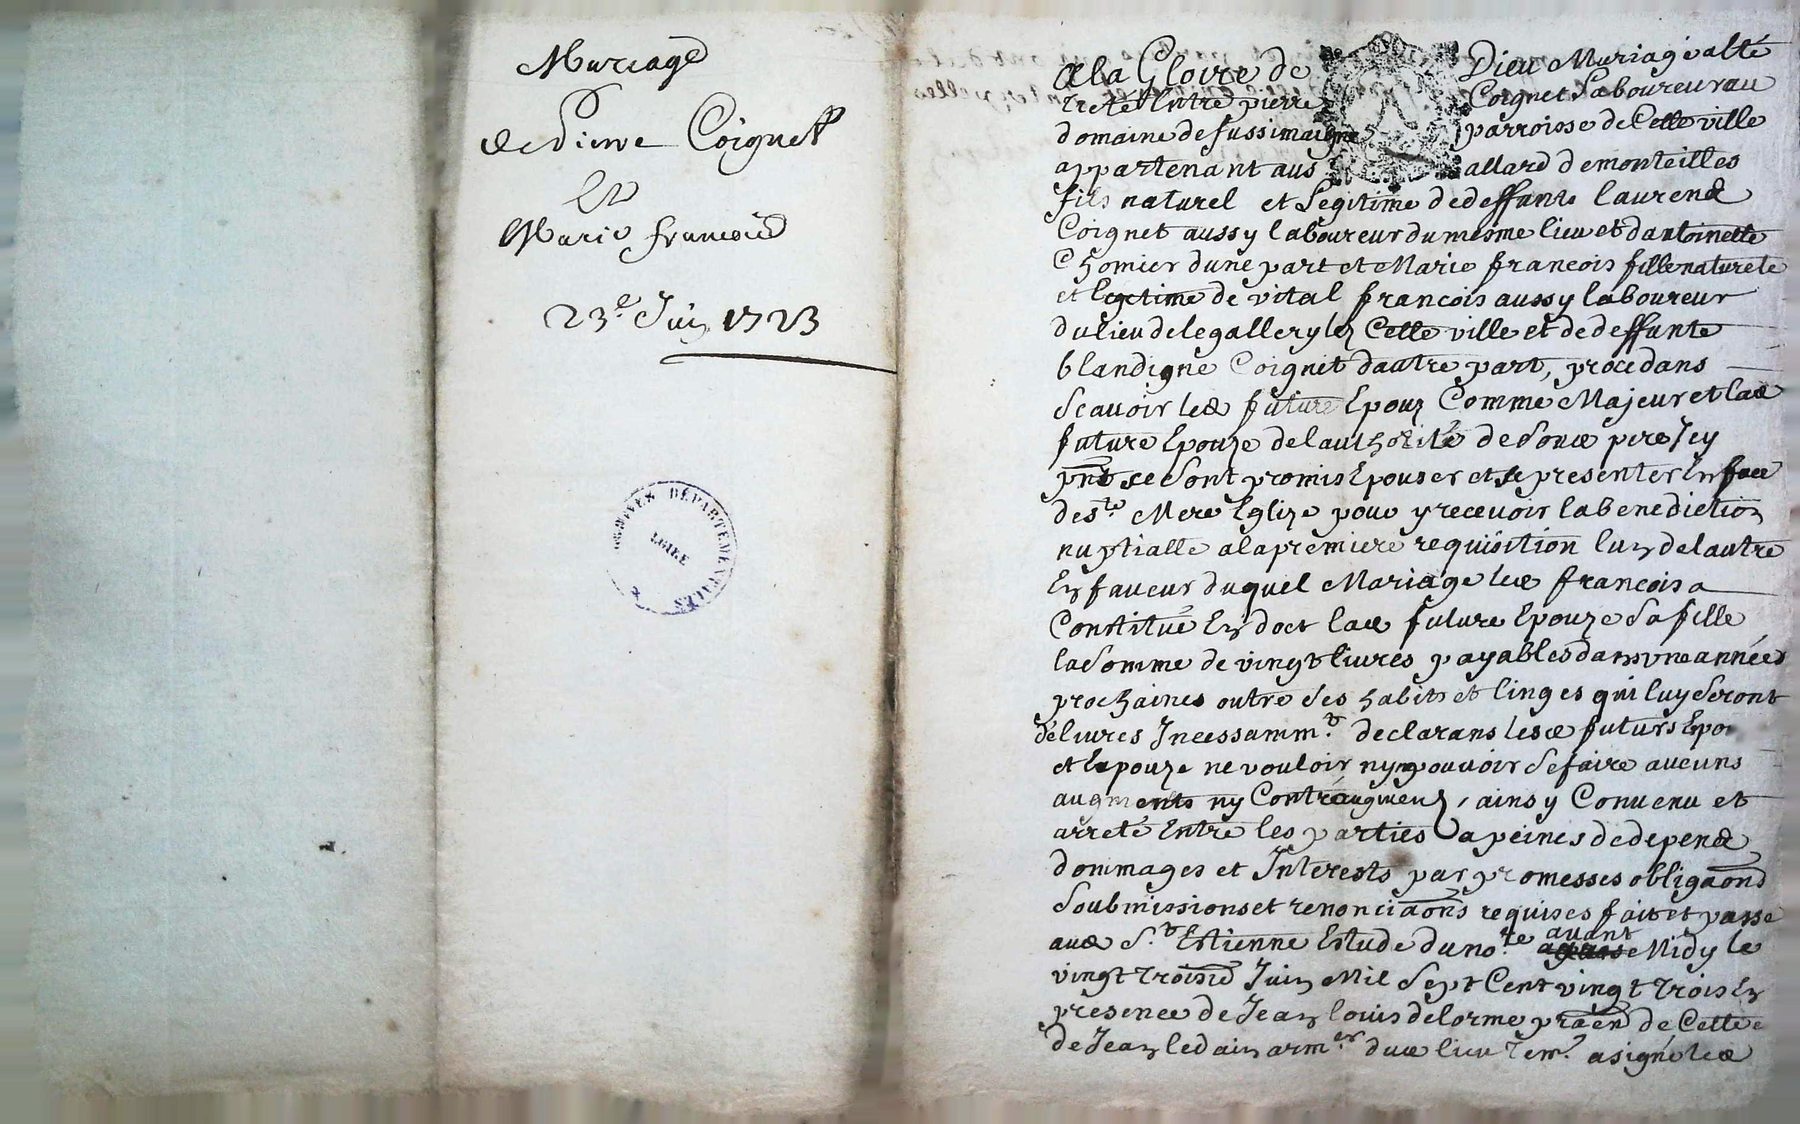 Mariage
de Pierre Coignet
Et
Marie francois
23e Juin 1723
ARCHIVES DÉPARTEMENTALES
LOIRE
A la Gloire de Dieu Mariage a esté
treté Entre pierre Coignet Laboureur au
domaine de fussimaigne parroisse de Cette ville
appartenant aus allard demonteilles
fils naturel et Legitime de deffunts laurend
Coignet aussy laboureur du mesme lieu et dantoinette
Chomier dune part et Marie francois fille naturele
et legetime de vital francois aussy laboureur
du lieu de legallery lez Cette ville et de deffunte
blandigne Coignet dautre part, procedans
Scavoir led future Epouz Comme Majeur et lad
future Epouze de lauthorité de Sond pere Jcy
pnt se Sont promis Epouser et se presenter En face
de ste Mere Eglize pour y recevoir la benediction
nuptialle a la premiere requisition lun de lautre
En faveur duquel Mariage led francois a
Constitué En doct lad future Epouze Sa fille
la Somme de vingt livres payables dans une années
prochaines outre Ses habits et linges qui luy Seront
délivres Jncessammt declarans lesd futurs Epo
et Epouze ne vouloir ny pouvoir Se faire aucuns
augments ny Contraugmens, ainsy Convenu et
arreté Entre les parties a peines de depend
dommages et Jnterests par promesses obligaons
Soubmissions et renonciaons requises fait et passé
aud St Estienne Estude du nore avant Midy le
vingt troisie Juin Mil Sept Cent vingt trois En
presence de Jean louis delorme praen de Cette
de Jean ledain armer dud lieu tem. a signé led